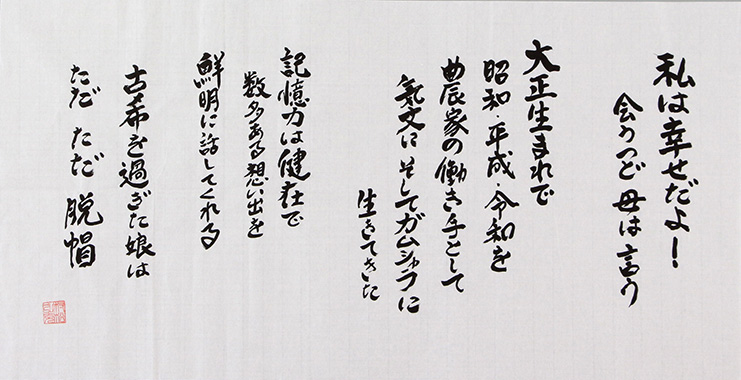 私は幸せだよ！
会うつど 母は言う
大正生まれで
昭和・平成・令和を
農家の働き手として
氣丈に そしてガムシャラに
生きてきた
記憶力は健在で
数多ある想い出を
鮮明に話してくれる
古希を過ぎた娘は
ただ ただ 脱帽